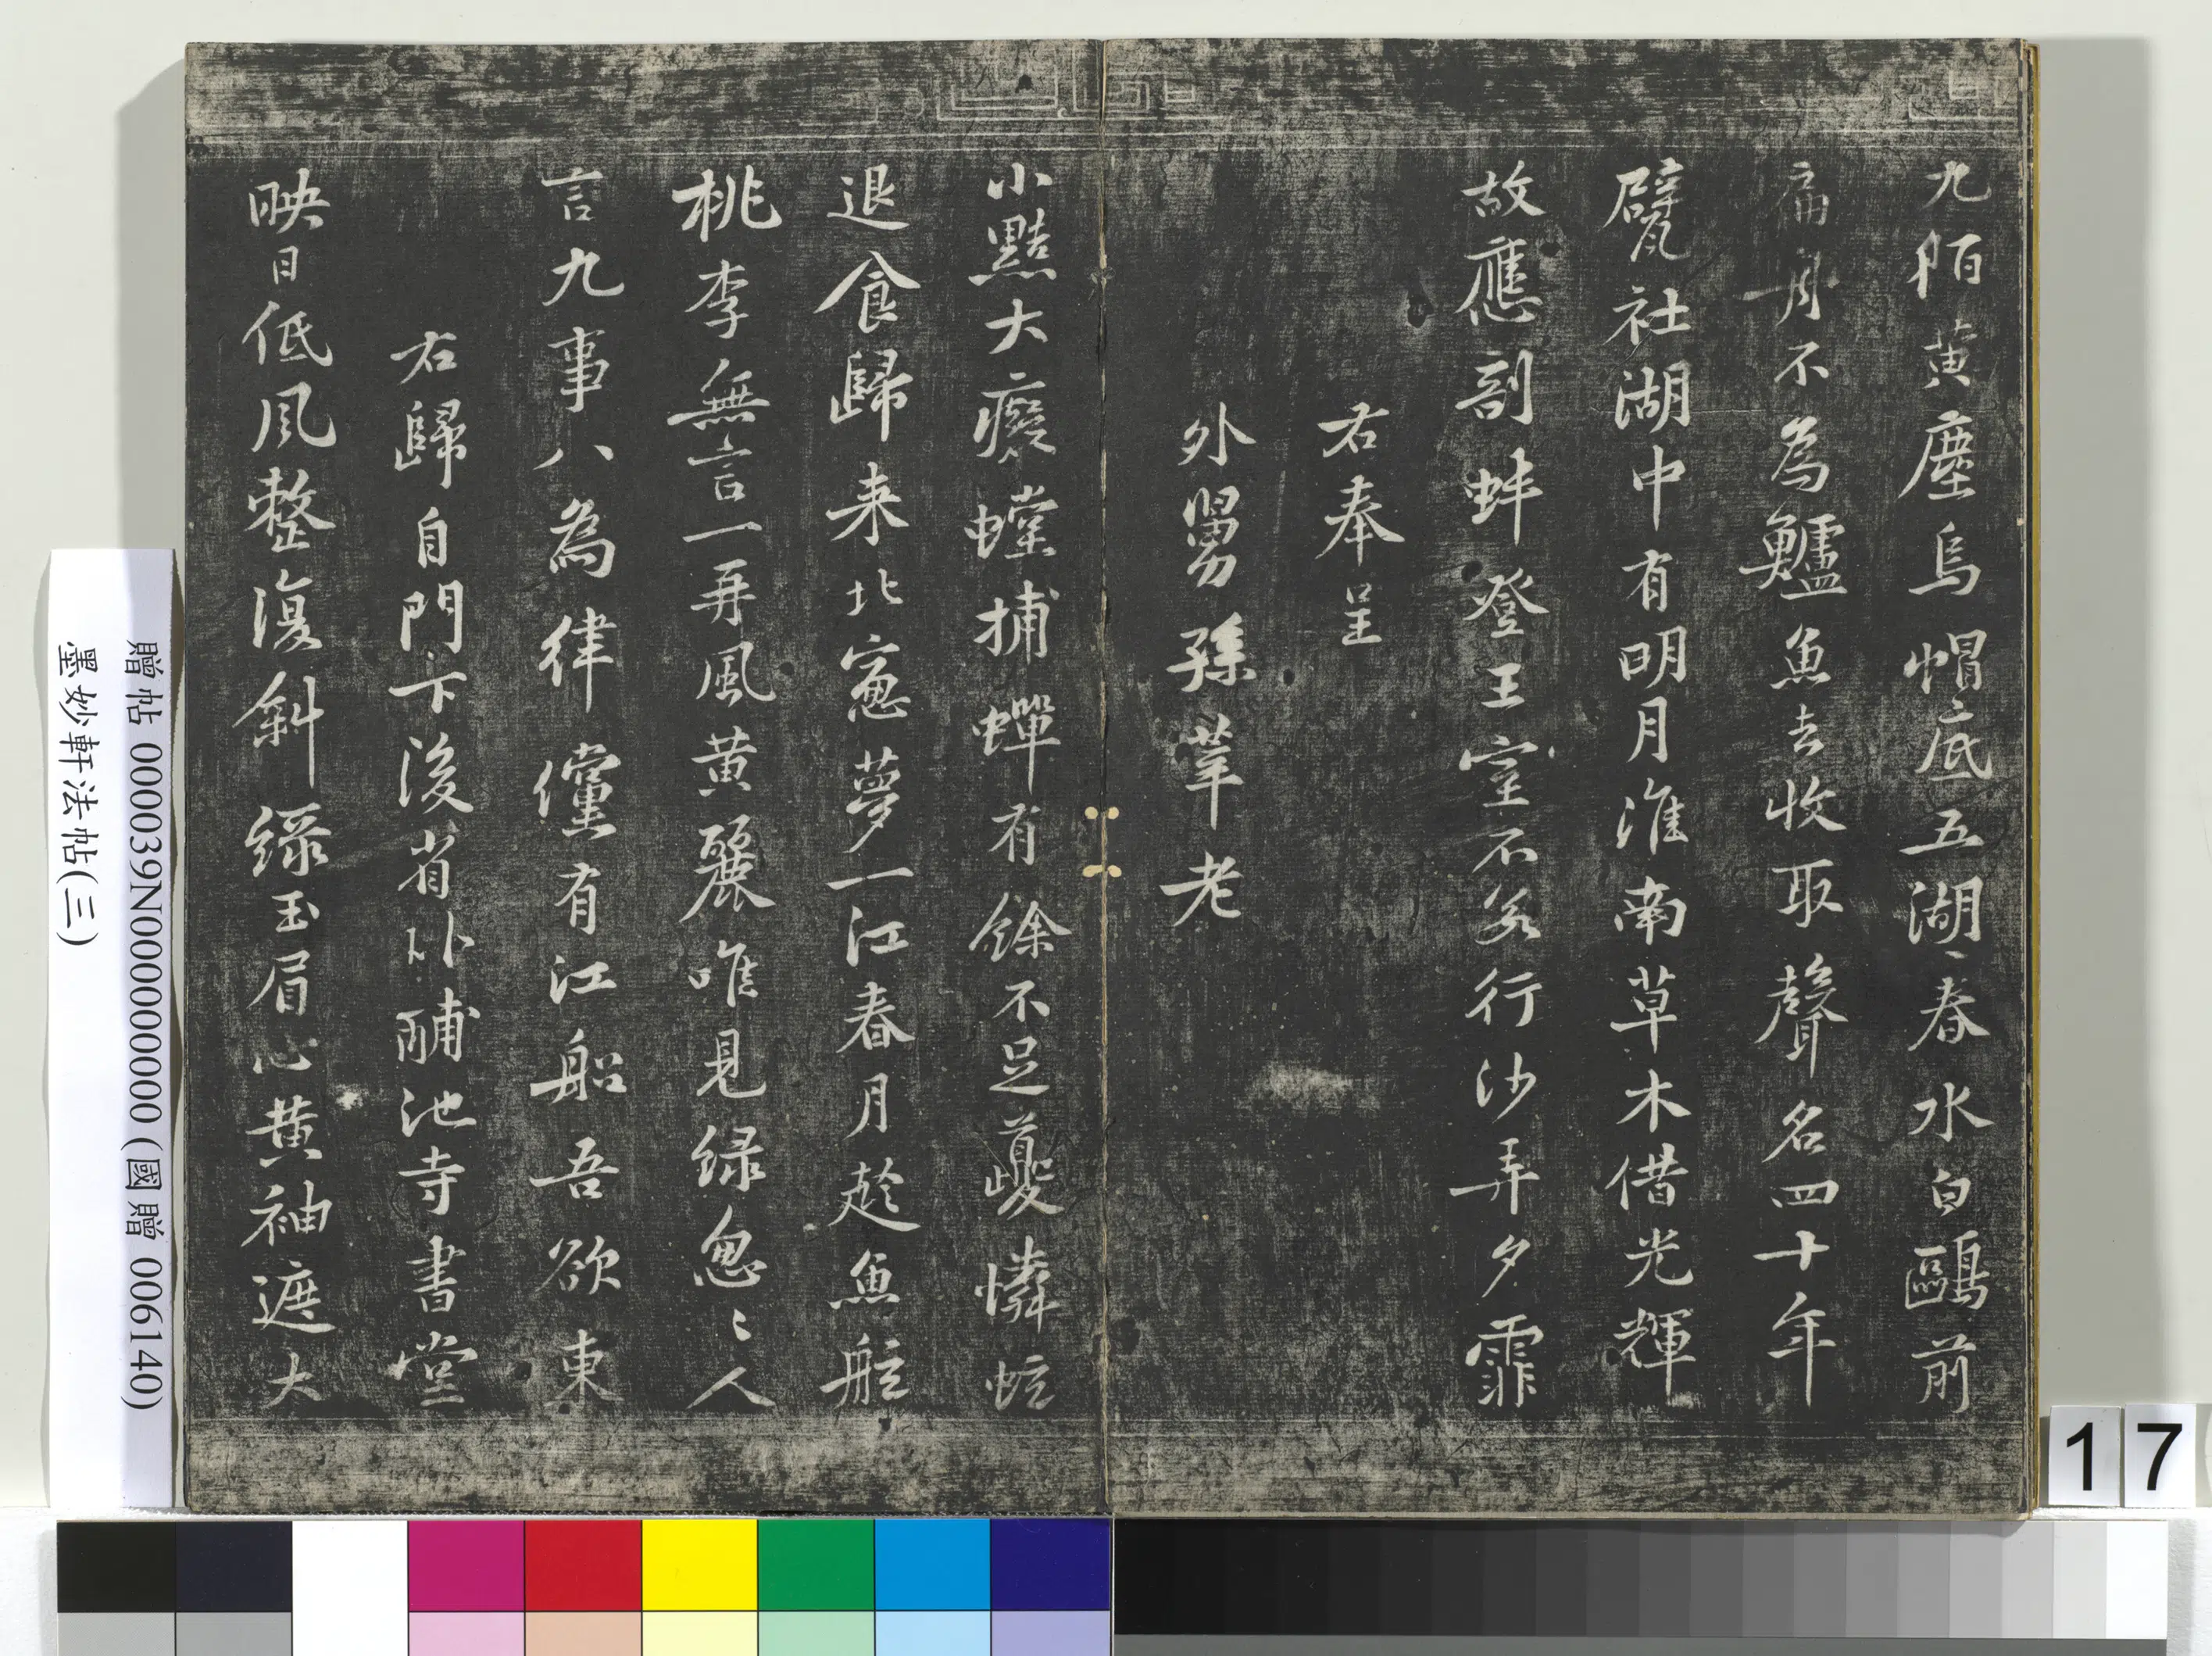 九陌黃塵烏帽底五湖春水白鷗前
扁舟不為鱸魚去收取聲名四十年
甓社湖中有明月淮南草木借光輝
故應剖蚌登王室不若行沙弄夕霏
右奉呈
外舅孫莘老
小黠大癡螳捕蟬有餘不足夔憐蚿
退食歸来北窓夢一江春月趂魚舡
桃李無言一再風黃麗唯見綠怱〻人
言九事八為律儻有江船吾欲東
右歸自門下後省卧酺池寺書堂
映日低風整復斜綠玉眉心黃袖遮大
贈帖 000039N000000000 (國贈 006140)
墨妙軒法帖(三)
17